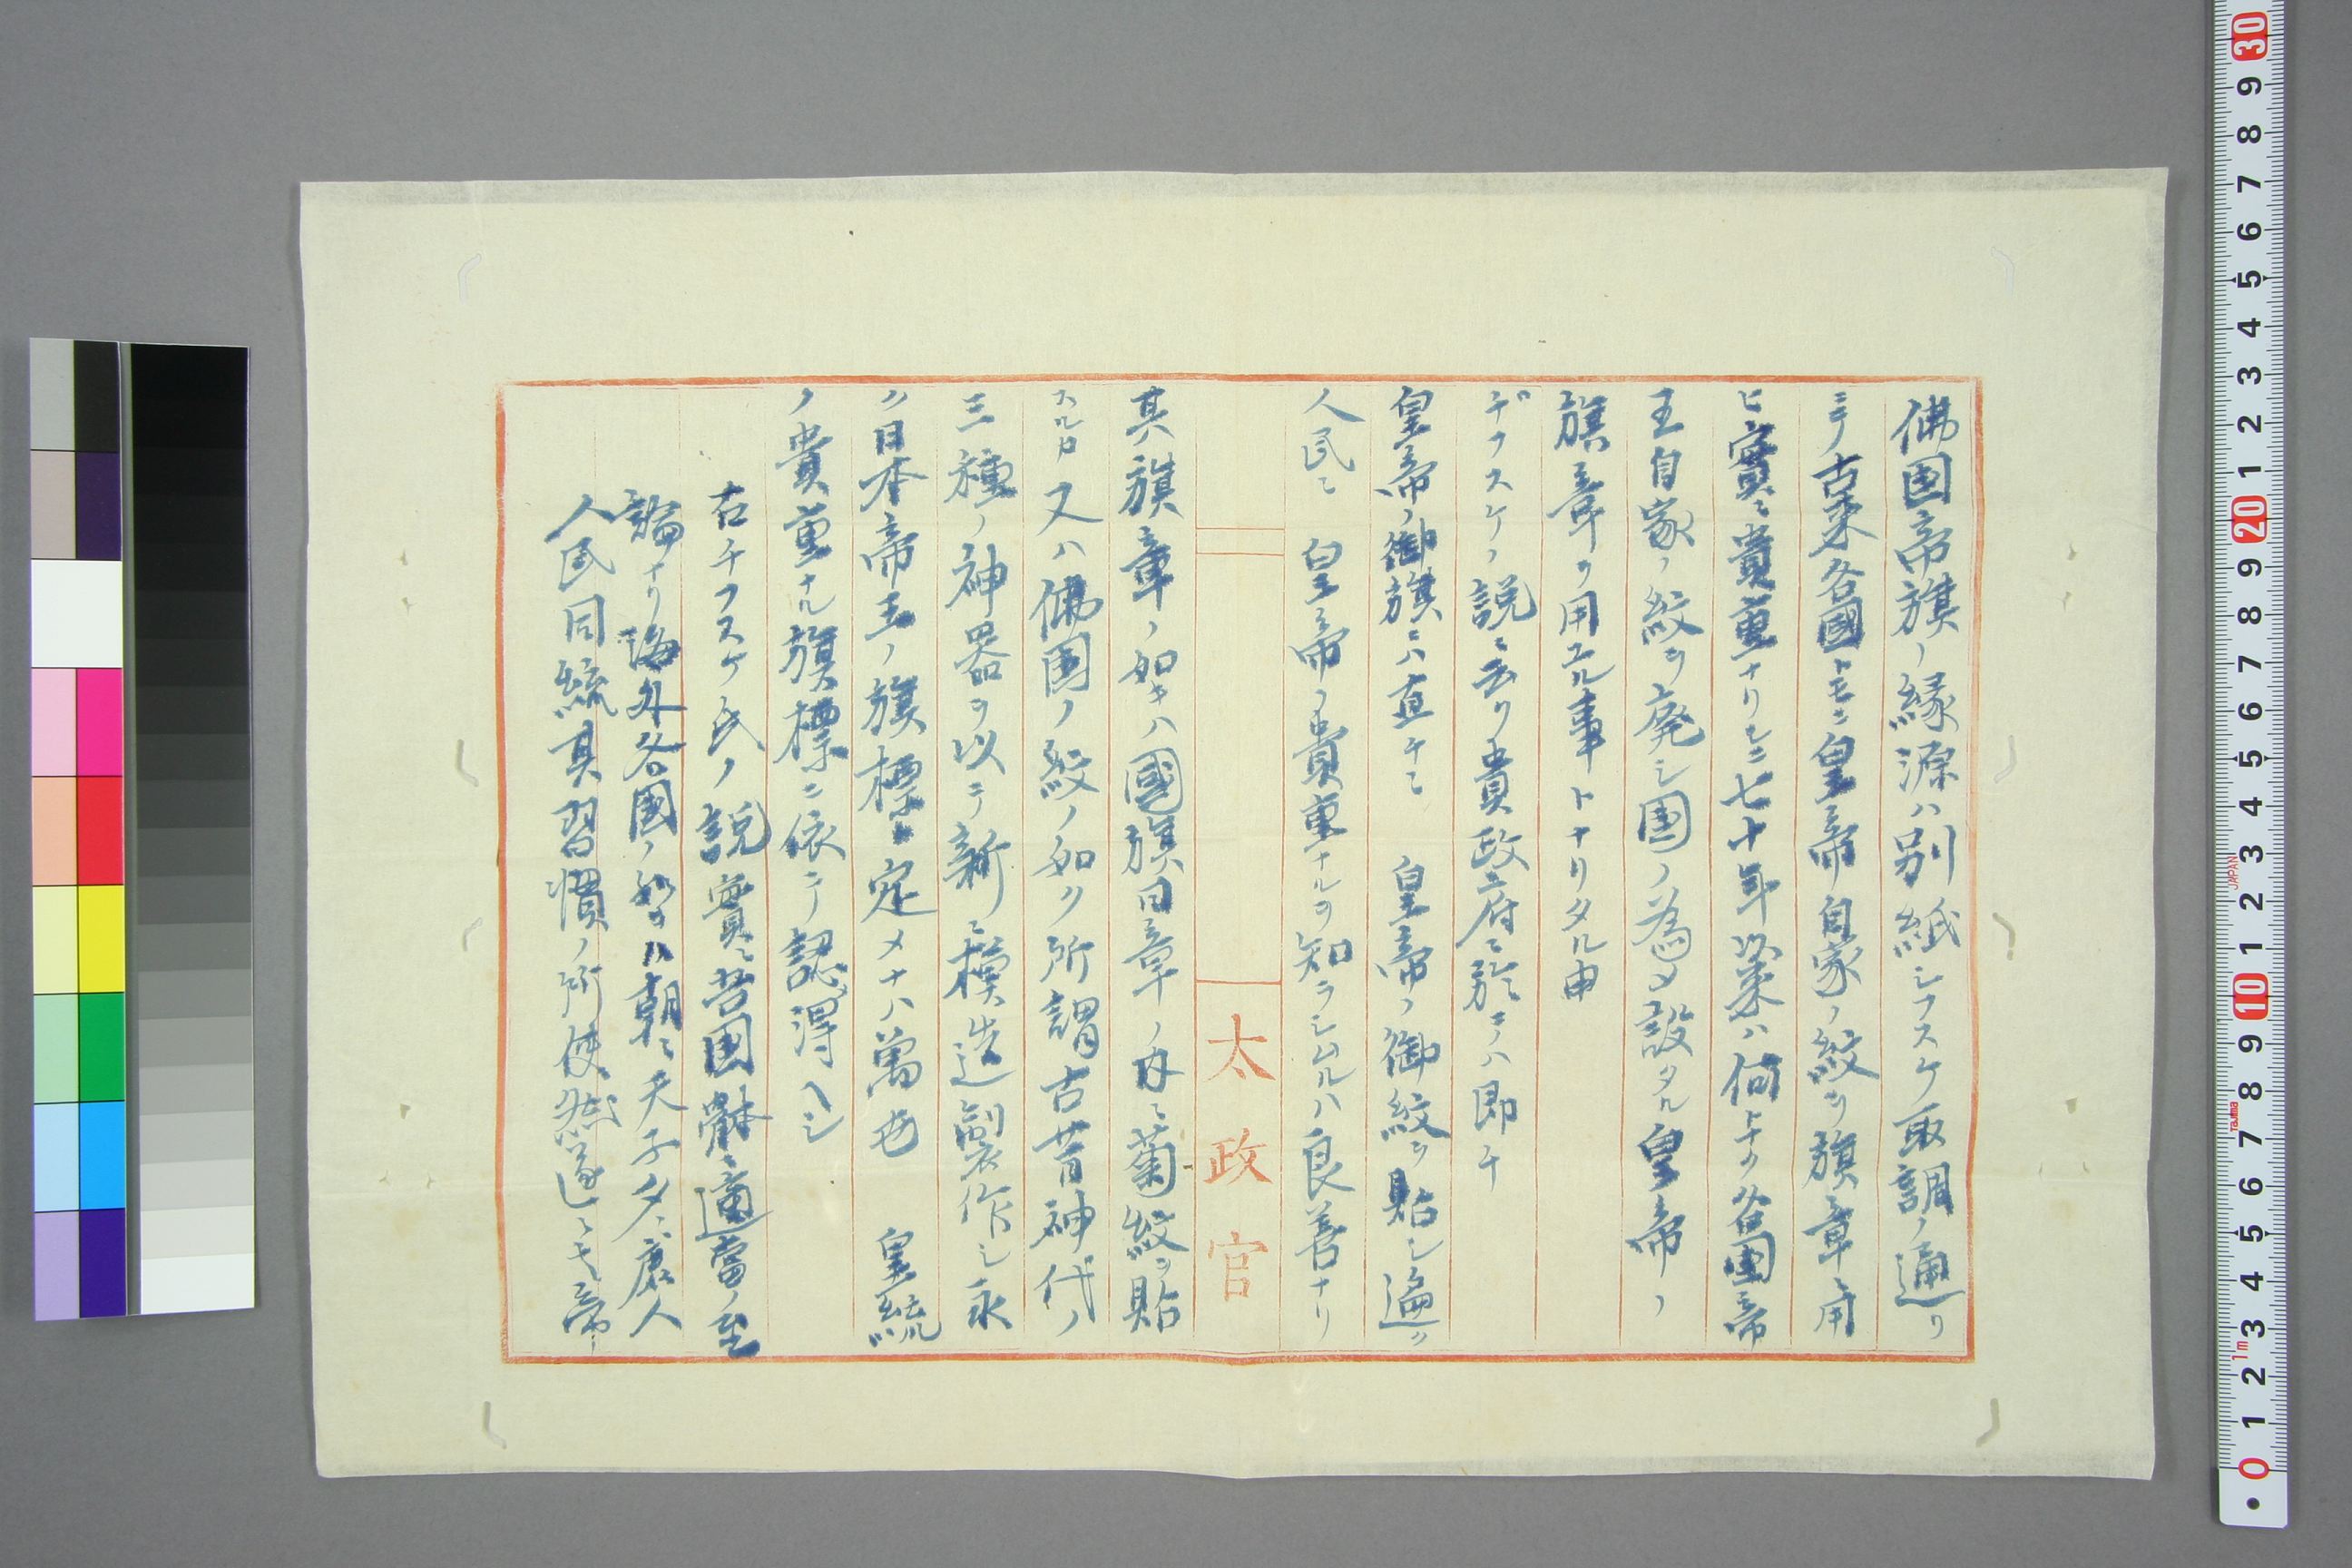 佛国帝旗ノ縁源ハ別紙シフスケ取調ノ通リ
ニテ古来各國トモニ皇帝自家ノ紋ヲ旗章ニ用
ヒ實ニ貴重ナリシニ七十年以来ハ何トナク各国帝
王自家ノ紋ヲ廃シ国ノ為メ設タル皇帝ノ
旗章ヲ用ユル事トナリタル由
ヂフスケノ説ニ云リ貴政府ニ於テハ即チ
皇帝ノ御旗ニハ直チニ 皇帝ノ御紋ヲ貼シ遍ク
人民ニ 皇帝ノ貴重ナルヲ知ラシムルハ良善ナリ
太政官
其旗章ノ如キハ國旗日章ノ内ニ菊紋ヲ貼
スルカ又ハ佛国ノ紋ノ如ク所謂古昔神代ノ
三種ノ神器ヲ以テ新ニ模造製作シ永
ク日本帝王ノ旗標ト定メナハ萬世 皇統
ノ貴重ナル旗標ニ依テ認得ヘシ
右チフスケ氏ノ説實ニ吾国軆ニ適當ノ至
論ナリ海外各国ノ如キハ朝ニ天子タ夕ニ庶人
人民同統其習慣ノ所使然遂ニモ帝